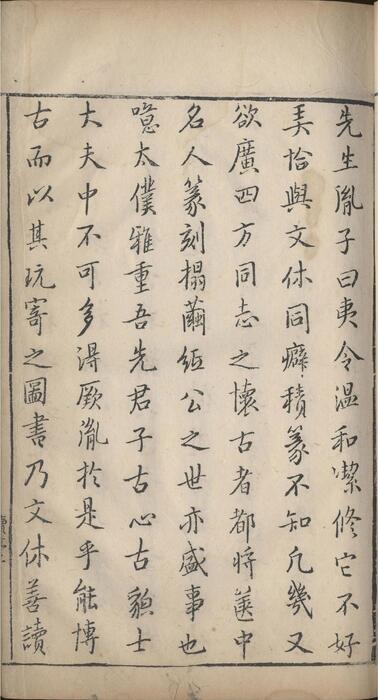 先生胤子曰夷令温和潔修它不好
弄恰與文休同癖積篆不知凡幾又
欲廣四方同志之懷古者都將篋中
名人篆刻搨繭紙公之世亦盛事也
噫太僕雅重吾先君子古心古貌士
大夫中不可多得厥胤於是乎能博
古而以其玩寄之圖書乃文休善讀